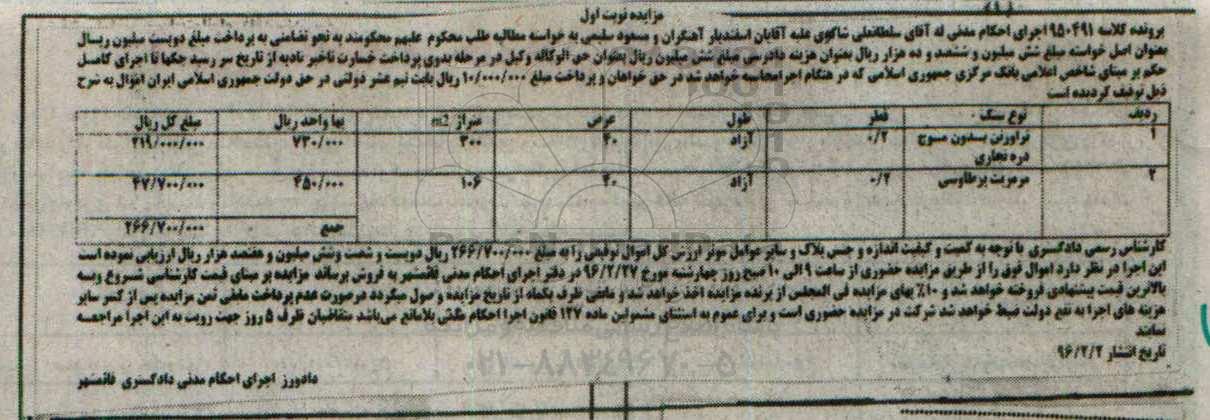 مزایده نوبت اول
پرونده کلاسه ۹۵۰۴۹۱ اجرای احکام مدنی له آقای سلطانعلی شاکوی علیه آقایان اسفندیار آهنگران و مسعود سلیمی به خواسته مطالبه طلب محکوم علیهم محکومند به نحو تضامنی به پرداخت مبلغ دویست میلیون ریال
بعنوان اصل خواسته مبلغ شش میلیون و ششصد و ده هزار ریال بعنوان هزینه دادرسی مبلغ شش میلیون ریال بعنوان حق الوکاله وکیل در مرحله بدوی پرداخت خسارت تاخیر تادیه از تاریخ سر رسید چکها تا اجرای کامل
حکم بر مبنای شاخص اعلامی بانک مرکزی جمهوری اسلامی که در هنگام اجرا محاسبه خواهد شد در حق خواهان و پرداخت مبلغ ۱۰/۰۰۰/۰۰۰ ریال بابت نیم عشر دولتی در حق دولت جمهوری اسلامی ایران اموال به شرح
ذیل توقیف گردیده است
ردیف نوع سنگ قطر طول عرض متراژ m2 بها واحد ریال مبلغ کل ریال
۱ تراورتن بدون موج ۰/۲ آزاد ۴۰ ۳۰۰ ۷۳۰/۰۰۰ ۲۱۹/۰۰۰/۰۰۰
دره بخاری
۲ مرمریت پرطاوسی ۰/۲ آزاد ۴۰ ۱۰۶ ۴۵۰/۰۰۰ ۴۷/۷۰۰/۰۰۰
جمع ۲۶۶/۷۰۰/۰۰۰
کارشناس رسمی دادگستری با توجه به کمیت و کیفیت اندازه و جنس پلاک و سایر عوامل موثر ارزش کل اموال توقیفی را به مبلغ ۲۶۶/۷۰۰/۰۰۰ ریال دویست و شصت وشش میلیون و هفتصد هزار ریال ارزیابی نموده است
این اجرا در نظر دارد اموال فوق را از طریق مزایده حضوری از ساعت ۹ الی ۱۰ صبح روز چهارشنبه مورخ ۹۶/۲/۲۷ در دفتر اجرای احکام مدنی قائمشهر به فروش برساند مزایده بر مبنای قیمت کارشناسی شروع وبه
بالاترین قیمت پیشنهادی فروخته خواهد شد و ۱۰٪ بهای مزایده فی المجلس از برنده مزایده اخذ خواهد شد و مابقی ظرف یکماه از تاریخ مزایده وصول میگردد درصورت عدم پرداخت مابقی ثمن مزایده پس از کسر سایر
هزینه های اجرا به نفع دولت ضبط خواهد شد شرکت در مزایده حضوری است و برای عموم به استثنای مشمولین ماده ۱۲۷ قانون اجرا احکام بلامانع می‌باشد متقاضیان ظرف ۵ روز جهت رویت به این اجرا مراجعه
نمایند
تاریخ انتشار ۹۶/۲/۲
دادورز اجرای احکام مدنی دادگستری قائمشهر
۰۲۱-۸۸۳۴۹۶۷۰-۵